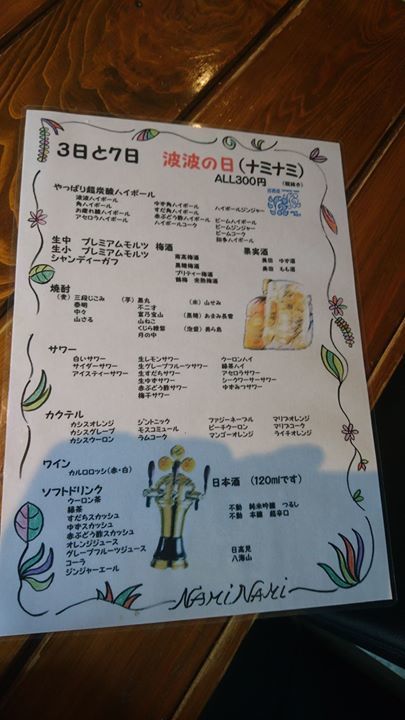 3日と7日 波波の日(ナミナミ)
ALL300円 (税抜き)
やっぱり超炭酸ハイボール
波波ハイボール ゆず角ハイボール ハイボールジンジャー
角ハイボール すだち角ハイボール
お疲れ様ハイボール 赤ぶどう酢ハイボール ビームハイボール
アセロラハイボール ハイボールコーク ビームジンジャー
ビームコーク
知多ハイボール
生中 プレミアムモルツ 梅酒 果実酒
生小 プレミアムモルツ 南高梅酒 奥田 ゆず酒
シャンディーガフ 黒糖梅酒 奥田 もも酒
プリティー梅酒
鶴梅 完熟梅酒
焼酎
(麦) 三段じこみ (芋) 黒丸 (米) 山せみ
壱明 不二才
中々 富乃宝山 (黒糖) あまみ長寿
山ざる 山ねこ
くじら綾紫 (泡盛) 美ら島
月の中
サワー
白いサワー 生レモンサワー ウーロンハイ
サイダーサワー 生グレープフルーツサワー 緑茶ハイ
アイスティーサワー 生すだちサワー アセロラサワー
生ゆずサワー シークワーサーサワー
赤ぶどう酢サワー ゆずみつサワー
梅干サワー
カクテル
カシスオレンジ ジントニック ファジーネーブル マリブオレンジ
カシスグレープ モスコミュール ピーチウーロン マリブコーク
カシスウーロン ラムコーク マンゴーオレンジ ライチオレンジ
ワイン
カルロロッシ(赤・白)
ソフトドリンク 日本酒 (120mlです)
ウーロン茶
緑茶 不動 純米吟醸 つるし
すだちスカッシュ 不動 本醸 超辛口
ゆずスカッシュ
赤ぶどう酢スカッシュ
オレンジジュース
グレープフルーツジュース 日高見
コーラ 八海山
ジンジャーエール
NAMiNAMi